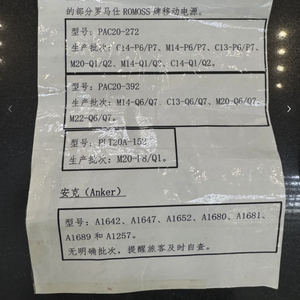 的部分罗马仕 ROMOSS 牌移动电源。
型号：PAC20-272
生产批次：C14-P6/P7、M14-P6/P7、C13-P6/P7、
M20-Q1/Q2、M14-Q1/Q2、C14-Q1/Q2。
型号：PAC20-392
生产批次：M14-Q6/Q7、C13-Q6/Q7、M20-Q6/Q7、
M22-Q6/Q7。
型号：PLT20A-152
生产批次：M20-P8/Q1。
安克（Anker）
型号：A1642、A1647、A1652、A1680、A1681、
A1689 和 A1257。
无明确批次，提醒旅客及时自查。